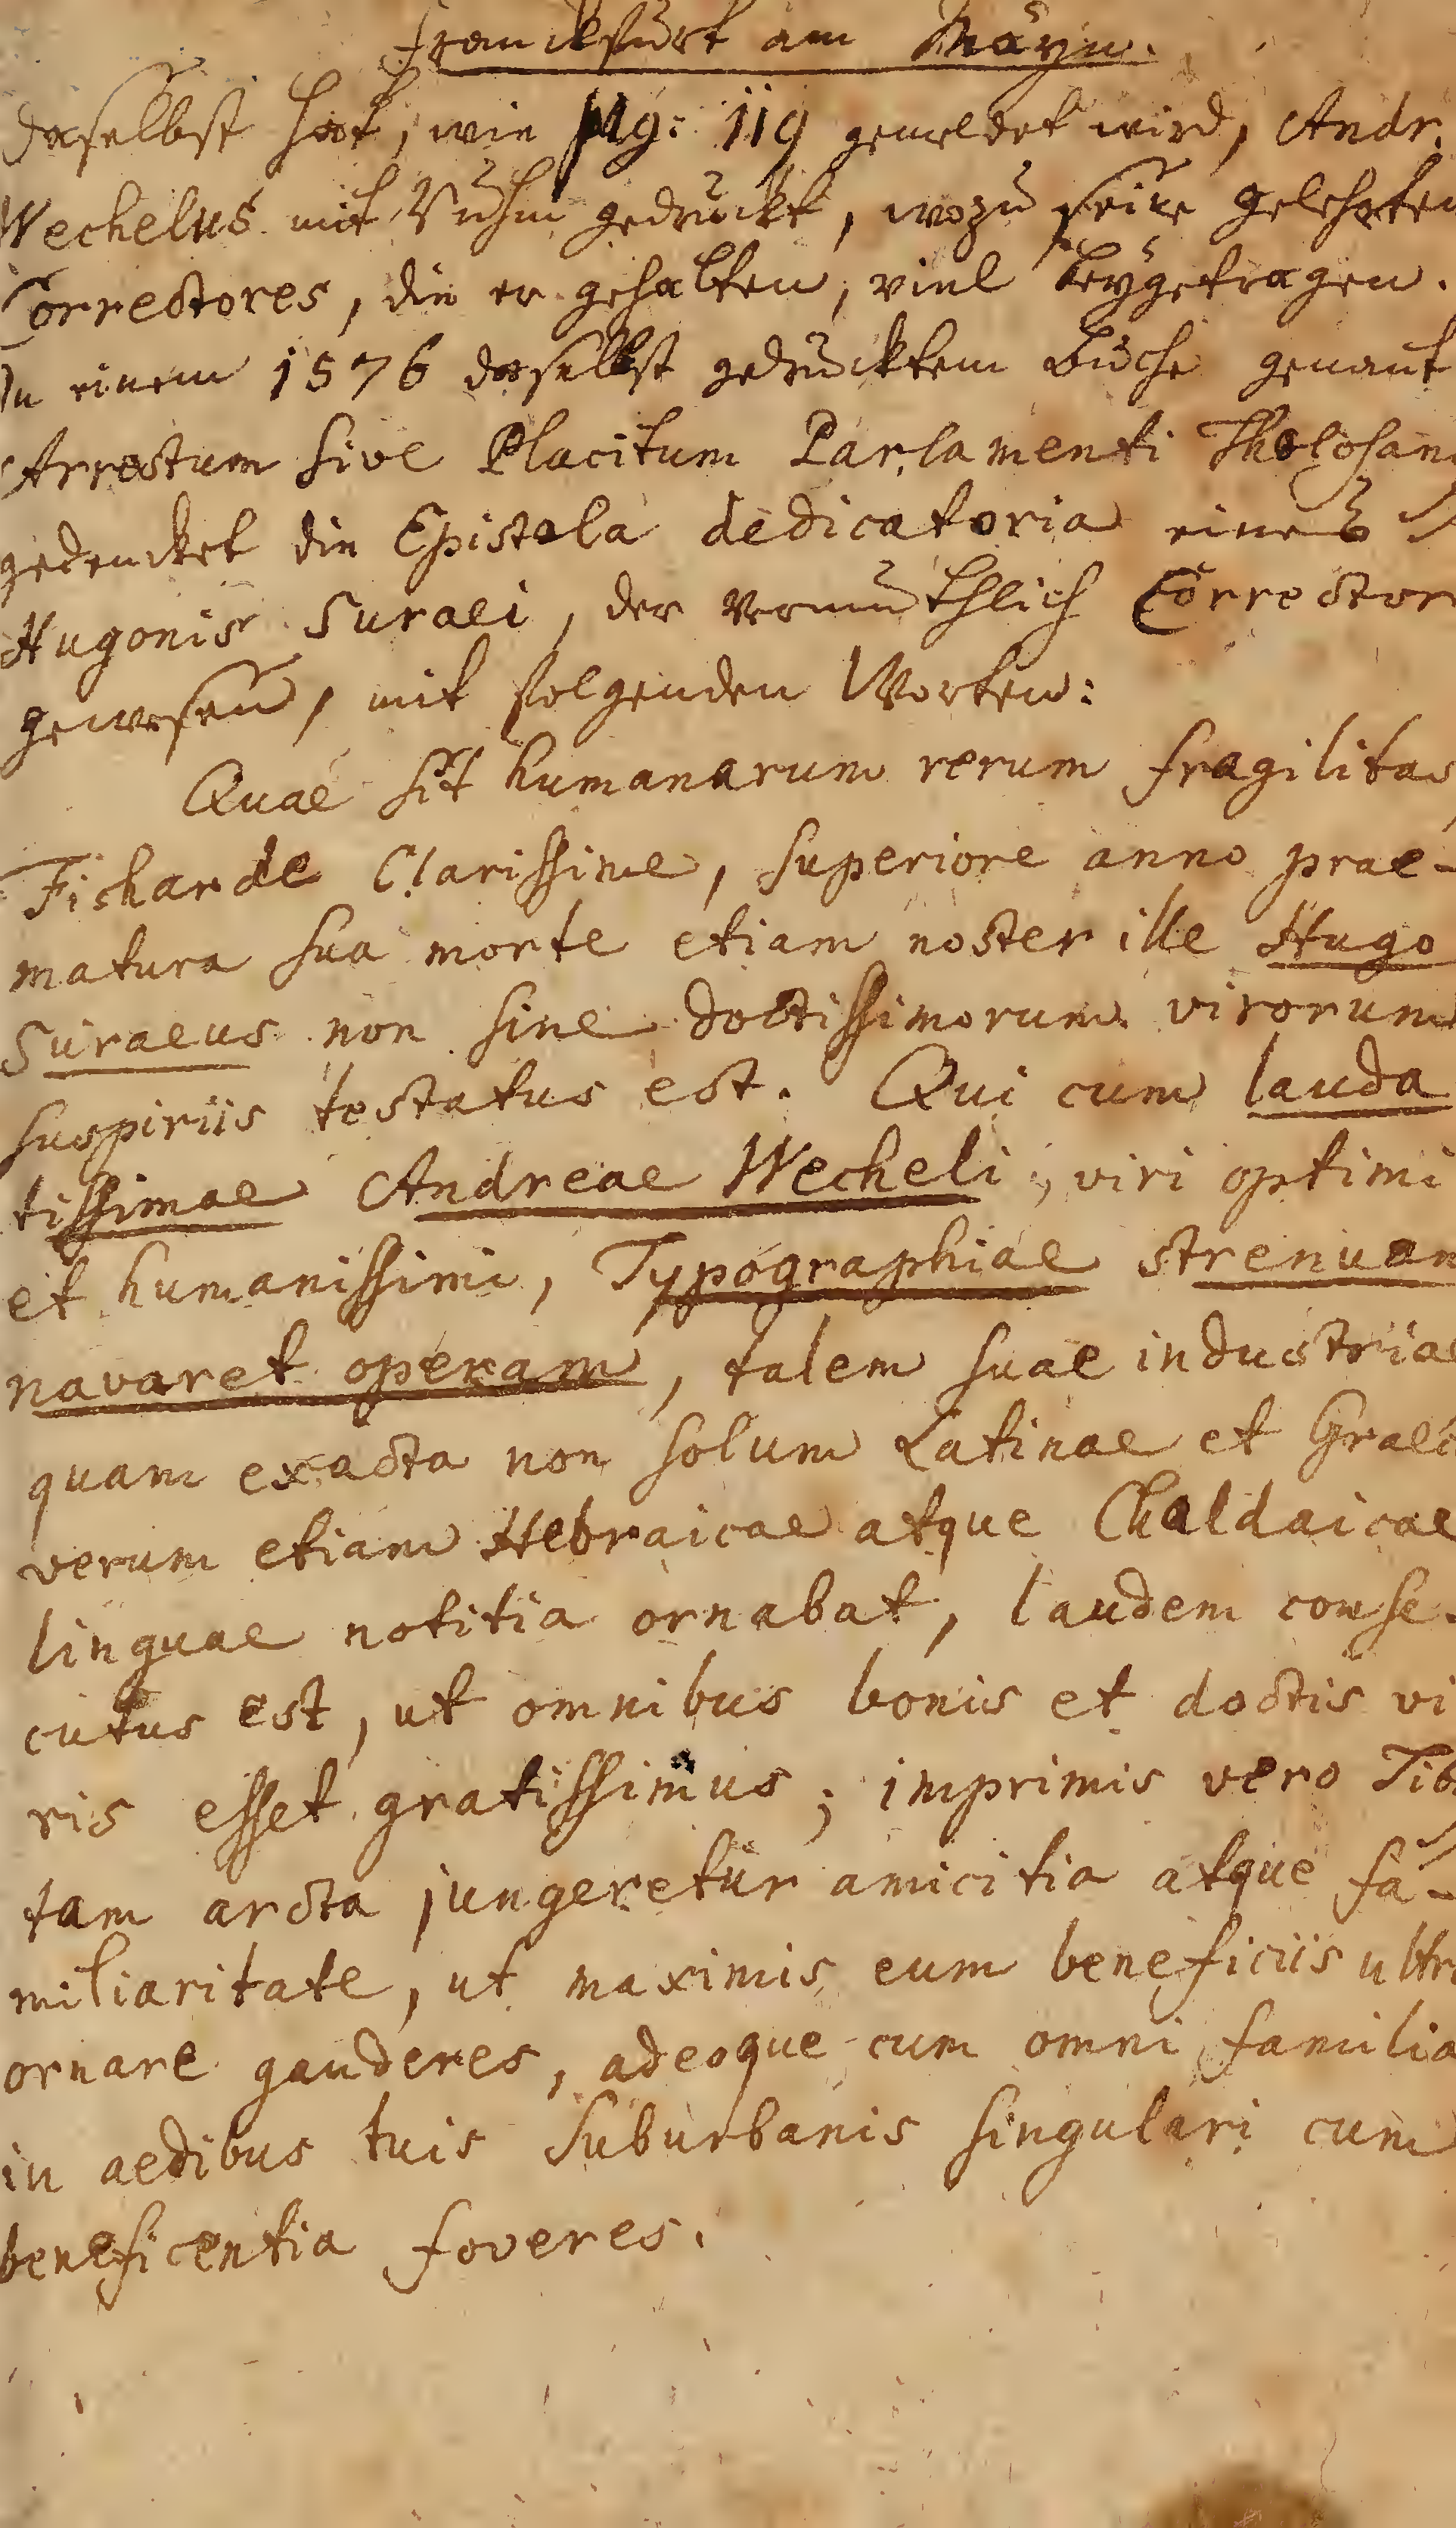 Franckfurt am Mäyn.
daselbst hat, wie pag: 119 gemeldet wird, Andr.
Wechelus mit Ruhm gedruckt, wozu seine gelehrten
Correctores, die er gehalten, viel beygetragen.
In einem 1576 daselbst gedrucktem Buche genant
Arrestum sive Placitum Parlamenti Tholosani
gedencket die Epistola dedicatoria eines
Hugonis Suraei, der vermuthlich Corrector
gewesen, mit folgenden Worten:
Quae sit humanarum rerum fragilitas,
Ficharde Clarissime, superiore anno prae-
matura sua morte etiam noster ille Hugo
Suraeus non sine doctissimorum virorum
suspiriis testatus est. Qui cum lauda
tissimae Andreae Wecheli, viri optimi
et humanissimi, Typographiae strenuam
navaret operam, talem suae industriae
quam exacta non solum Latinae et Graec
verum etiam Hebraicae atque Chaldaicae
linguae notitia ornabat, laudem conse-
cutus est, ut omnibus bonis et doctis vi
ris esset gratissimus; imprimis vero Tibi
tam arcta jungeretur amicitia atque fa-
miliaritate, ut maximis eum beneficiis ultro
ornare gauderes, adeoque cum omni familia
in aedibus tuis suburbanis singulari cum
beneficentia foveres.